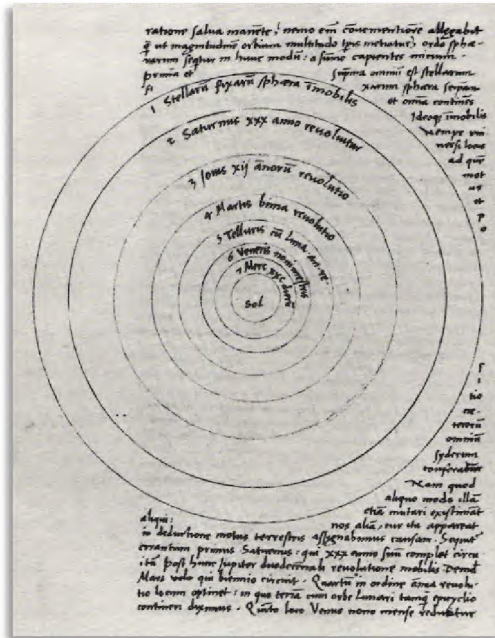 ratione salua manente, nemo em̄ conuenientiore allegabit
q̄ ut magnitudinē orbium multitudo tp̄is metiatur, ordo sphæ-
rarum sequitur in hunc modū: a sūmo capientes initium.
prima et suprema omniū est stellarum
fi xarum sphæra seipsam
et omnia continēs
Ideoq, īmobilis
nempe uni
uersi locus
ad quē
mot
us
et
p
o
1 Stellarū fixarū sphæra īmobilis
2 Saturnus xxx anno reuoluitur
3 Jouis xij annorū reuolutio
4 Martis bima reuolutio
5 Telluris cū Luna an. re.
6 Veneris nonimestris
7 Merc. xxc dierū
Sol
r
tio
ne
ceterorū
omniū
syderum
conferatur
Nam quod
aliquo modo illā
etiā mutari existimāt
aliqui: nos aliā, cur ita appareat
in deductione motus terrestris assignabimus causam. Sequit
errantium primus Saturnus: qui xxx anno suū complet circu
itū post hunc Jupiter duodecennali reuolutione mobilis Deinde
Mars uolo qui biennio circuit. Quartū in ordine annua reuolu-
tio locum optinet: in quo terrā cum orbe Lunari tanq epicyclio
contineri diximus. Quinto loco Venus nono mense reducitur